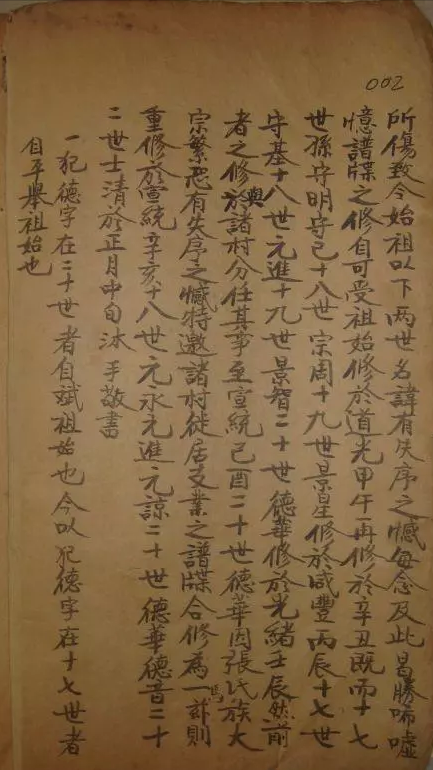 002
所傷致令始祖以下两世名諱有失序之憾每念及此曷勝唏噓
憶譜牒之修自可受祖始修於道光甲午再修於辛丑既而十七
世孫守明守己十八世宗周十九世景星修於咸豐丙辰十七世
守基十八世元進十九世景智二十世德華修於光緒壬辰然前
者之修與於諸村分任其事至宣統己酉二十世德華因張氏族大
宗繁恐有失序之憾特邀諸村徙居支業之譜牒合修為一訂則
重修於宣統辛亥十八世元永元進元諒二十世德華德音二十
二世士清於正月中旬沐手敬書
一犯德字在二十世者自斌祖始也今以犯德字在十七世者
自平舉祖始也